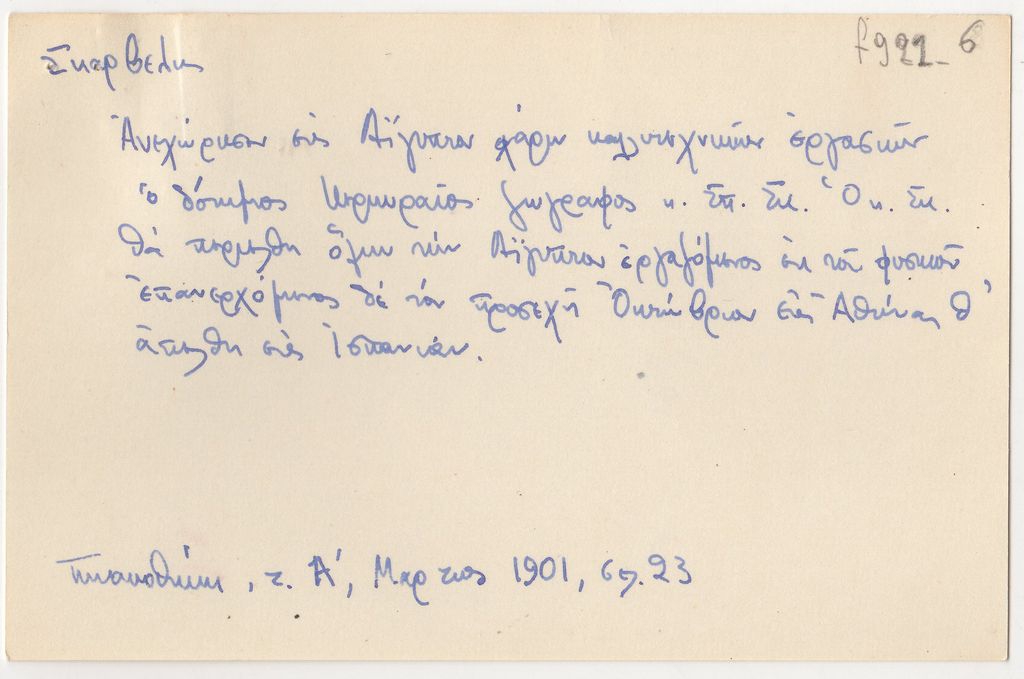 Σκαρβέλης
f921_6
Ἀνεχώρησεν εἰς Αἴγυπτον χάριν καλλιτεχνικῶν ἐργασιῶν
ὁ δόκιμος Κερκυραῖος ζωγράφος κ. Σπ. Σκ. Ὁ κ. Σκ.
θὰ περιέλθῃ ὅλην τὴν Αἴγυπτον ἐργαζόμενος ἐκ τοῦ φυσικοῦ
ἐπανερχόμενος δὲ τὸν προσεχῆ Ὀκτώβριον εἰς Ἀθήνας θ'
ἀπέλθῃ εἰς Ἱσπανίαν.
Πινακοθήκη, τ. Α', Μάρτιος 1901, σελ. 23